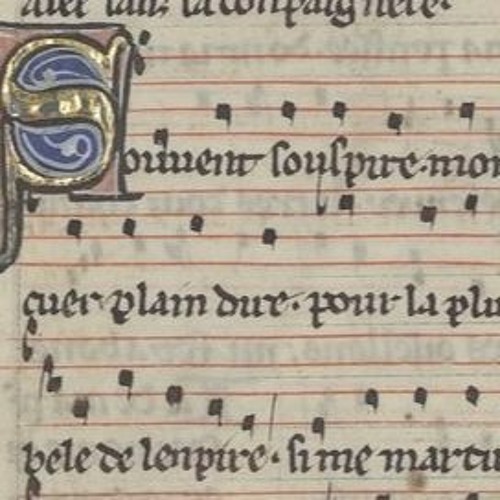 auec lui. la compaignere.
Souuent souspire. mon
cuer plain dire. pour la plu
bele de lenpire. si me martir